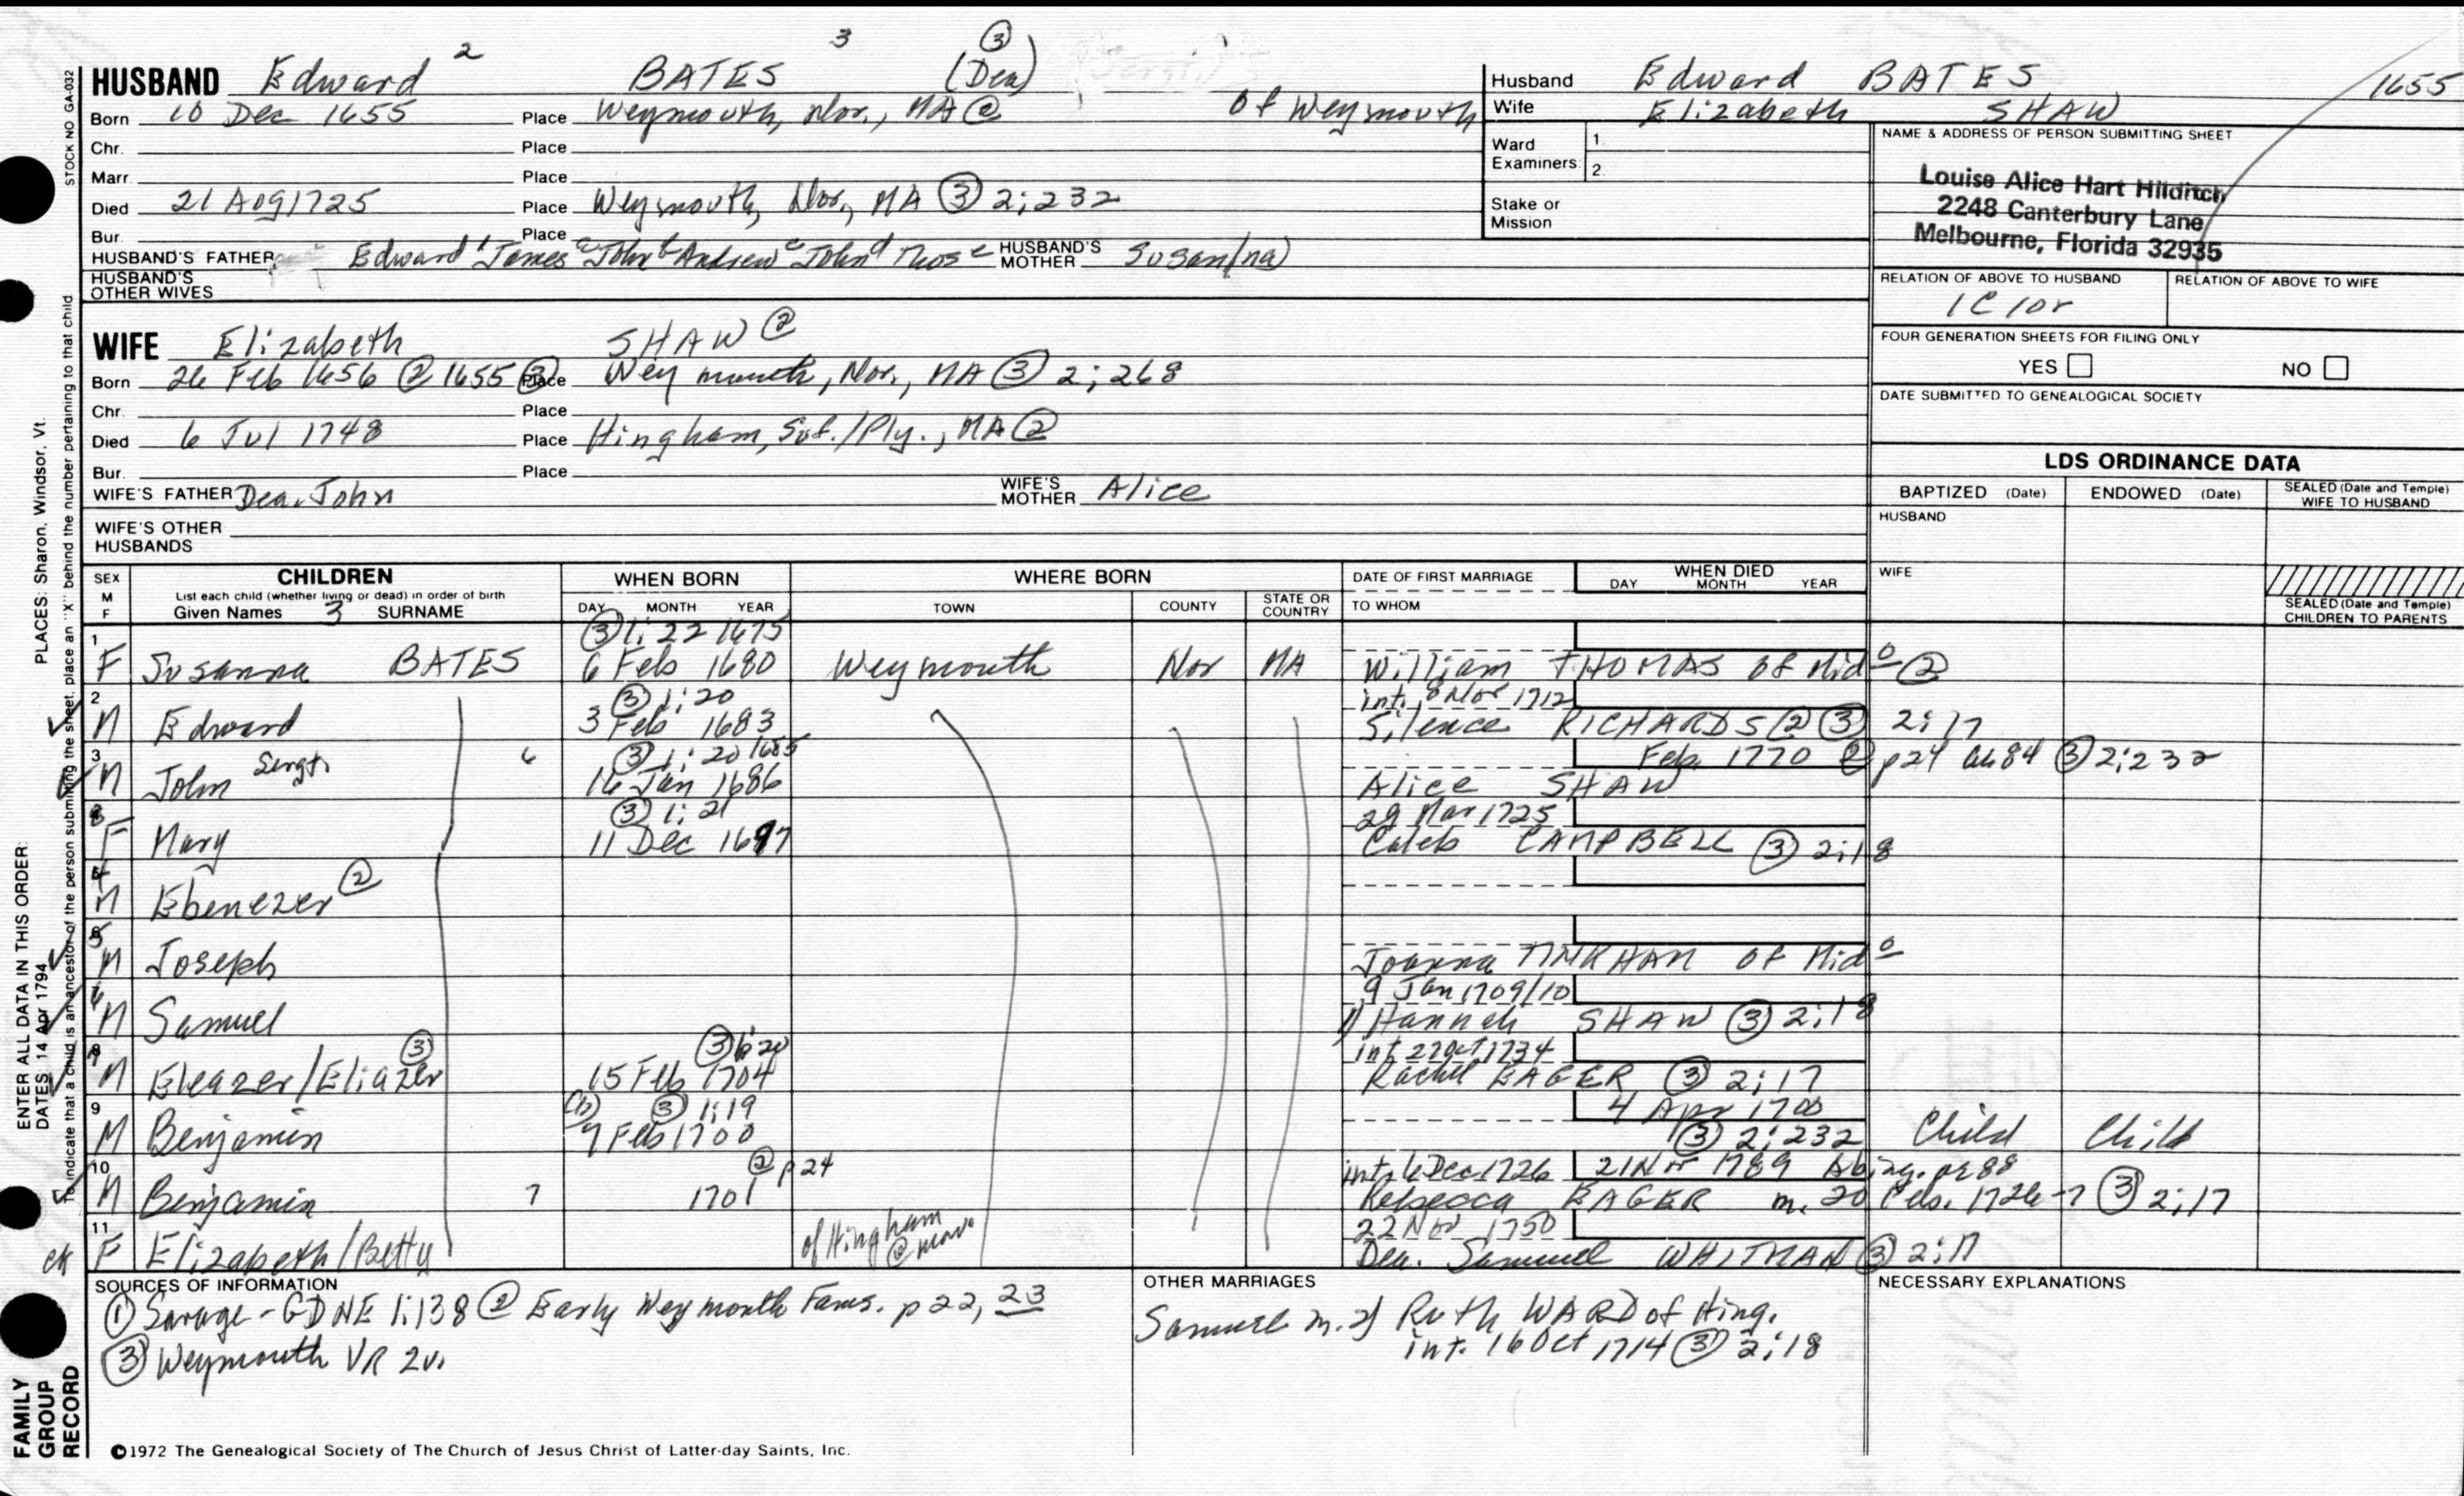 3 ③
HUSBAND Edward 2 BATES (Dea)
Born 10 Dec 1655 Place Weymouth, Nor., MA ② of Weymouth
Chr. Place
Marr. Place
Died 21 Aug 1725 Place Weymouth, Nor., MA ③ 2;232
Bur. Place
HUSBAND'S FATHER Edward 1 James a John b Andrew c John d Thos e HUSBAND'S MOTHER Susan(na)
HUSBAND'S OTHER WIVES
WIFE Elizabeth SHAW ②
Born 26 Feb 1656 ② 1655 ③ Place Weymouth, Nor., MA ③ 2;268
Chr. Place
Died 6 Jul 1748 Place Hingham, Suf./Ply., MA ②
Bur. Place
WIFE'S FATHER Dea. John WIFE'S MOTHER Alice
WIFE'S OTHER HUSBANDS
Husband Edward BATES 1655
Wife Elizabeth SHAW
Ward 1.
Examiners: 2.
Stake or
Mission
NAME & ADDRESS OF PERSON SUBMITTING SHEET
Louise Alice Hart Hilditch
2248 Canterbury Lane
Melbourne, Florida 32935
RELATION OF ABOVE TO HUSBAND RELATION OF ABOVE TO WIFE
1C 10r
FOUR GENERATION SHEETS FOR FILING ONLY
YES NO
DATE SUBMITTED TO GENEALOGICAL SOCIETY
LDS ORDINANCE DATA
BAPTIZED (Date) ENDOWED (Date) SEALED (Date and Temple) WIFE TO HUSBAND
HUSBAND
WIFE
SEALED (Date and Temple) CHILDREN TO PARENTS
SEX M F CHILDREN WHEN BORN WHERE BORN DATE OF FIRST MARRIAGE WHEN DIED
List each child (whether living or dead) in order of birth DAY MONTH YEAR
Given Names 3 SURNAME DAY MONTH YEAR TOWN COUNTY STATE OR COUNTRY TO WHOM
1 ③ 1;22 1675
F Susanna BATES 6 Feb 1680 Weymouth Nor MA William THOMAS of Mid o ②
2 ③ 1:20 int. 8 Nov 1712
M Edward 3 Feb 1683 Silence RICHARDS ② ③ 2;17
3 ③ 1:20 1685 Feb. 1770 ② p24 ae 84 ③ 2;232
M John Sergt. 6 16 Jan 1686 Alice SHAW
③ 1;21 29 Mar 1725
F Mary 11 Dec 1697 Caleb CAMPBELL ③ 2;18
4
M Ebenezer ②
5
M Joseph Joanna TINKHAM of Mid o
6 9 Jan 1709/10
M Samuel 1) Hannah SHAW ③ 2;18
③ 1:20 int 27 Oct 1734
M Eleazer/Eliazer ③ 15 Feb 1704 Rachel EAGER ③ 2;17
9 (b) ③ 1;19 4 Apr 1700
M Benjamin 9 Feb 1700 ③ 2;232 Child Child
10 ② p24 int. 6 Dec 1726 21 Nov 1789 Abing. ae 88
M Benjamin 7 1701 Rebecca EAGER m. 20 Feb. 1726-7 ③ 2;17
11 22 Nov 1750
ck F Elizabeth/Betty of Hingham @ marr Dea. Samuel WHITMAN ③ 2;17
SOURCES OF INFORMATION
① Savage - GDNE 1:138 ② Early Weymouth Fams. p 22, 23
③ Weymouth VR 2v.
OTHER MARRIAGES
Samuel m. 2) Ruth WARD of Hing.
int. 16 Oct 1714 ③ 2;18
NECESSARY EXPLANATIONS
©1972 The Genealogical Society of The Church of Jesus Christ of Latter-day Saints, Inc.
STOCK NO GA-032
PLACES: Sharon, Windsor, Vt.
To indicate that a child is an ancestor of the person submitting the sheet, place an "X" behind the number pertaining to that child
ENTER ALL DATA IN THIS ORDER:
DATES: 14 Apr 1794
FAMILY
GROUP
RECORD